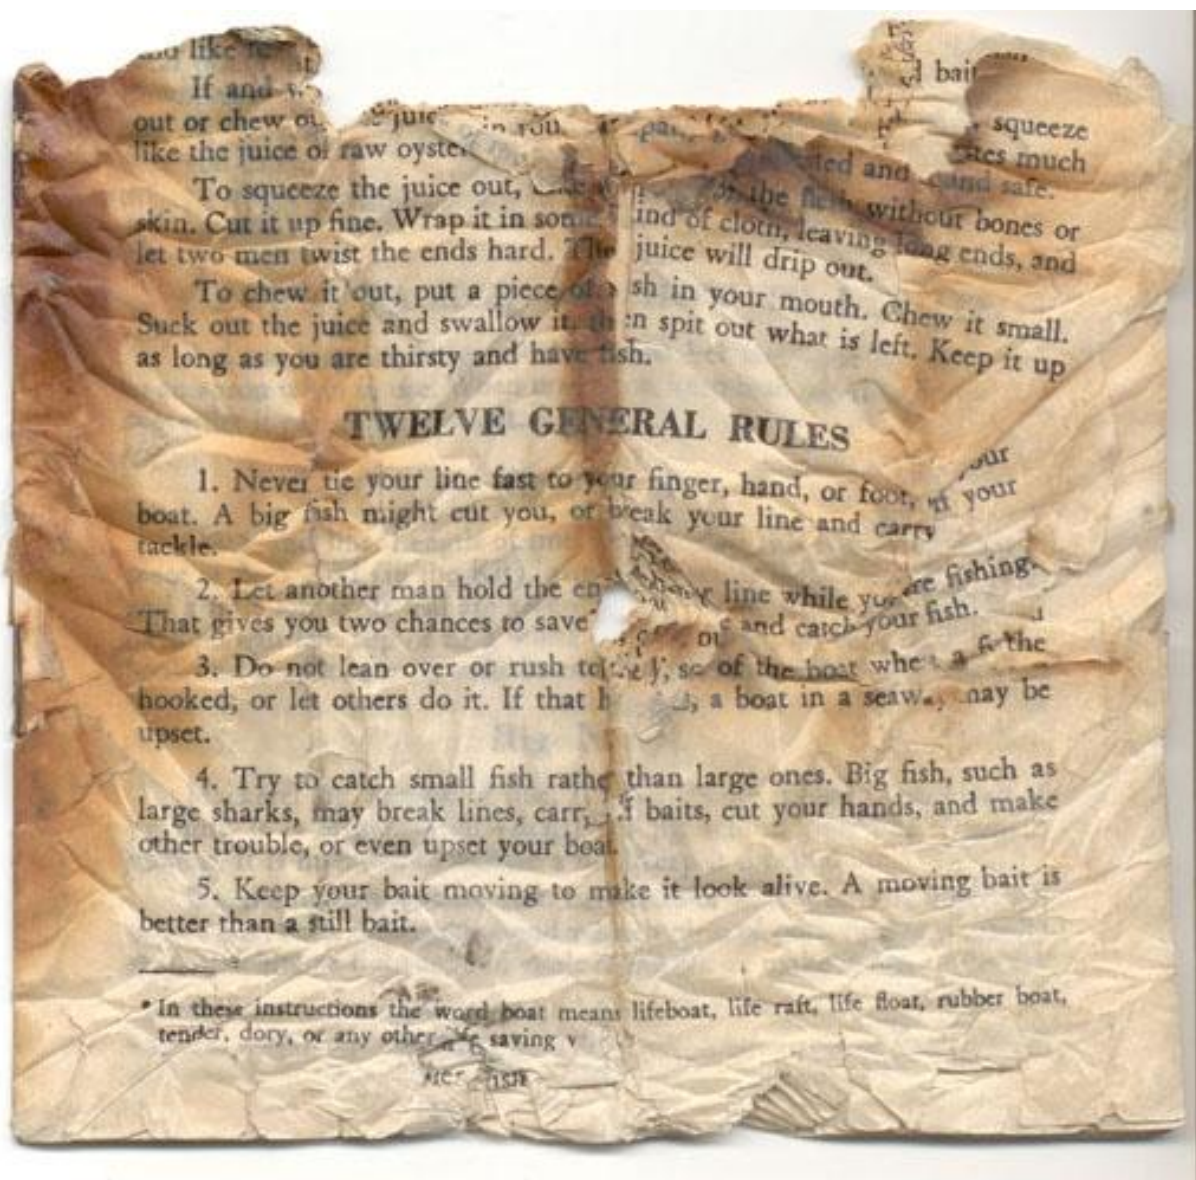 like
If and
out or chew juic in you squeeze
like the juice of raw oyster and much
bait
To squeeze the juice out, and safe.
the flesh without bones or
skin. Cut it up fine. Wrap it in some ind of cloth, leaving long ends, and
let two men twist the ends hard. The juice will drip out.
To chew it out, put a piece of sh in your mouth. Chew it small.
Suck out the juice and swallow it. then spit out what is left. Keep it up
as long as you are thirsty and have fish.
TWELVE GENERAL RULES
1. Never tie your line fast to your finger, hand, or foot, your
boat. A big fish might cut you, or break your line and carry your
tackle.
2. Let another man hold the en line while you are fishing.
That gives you two chances to save and catch your fish.
3. Do not lean over or rush to of the boat when a the
hooked, or let others do it. If that h s, a boat in a seaway may be
upset.
4. Try to catch small fish rathe than large ones. Big fish, such as
large sharks, may break lines, carr f baits, cut your hands, and make
other trouble, or even upset your boat.
5. Keep your bait moving to make it look alive. A moving bait is
better than a still bait.
* In these instructions the word boat means lifeboat, life raft, life float, rubber boat,
tender, dory, or any other saving v